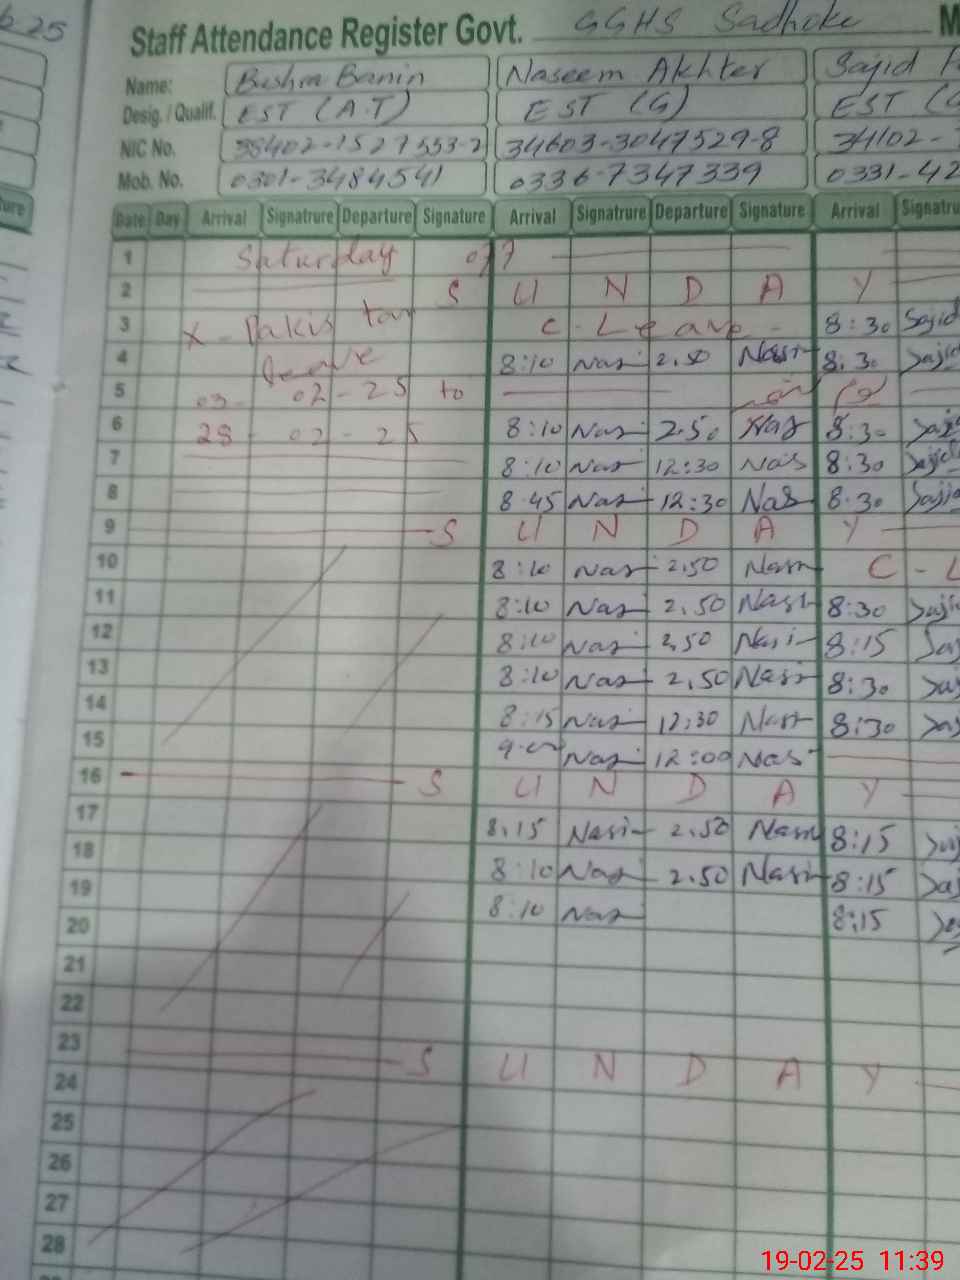 b 25
Staff Attendance Register Govt. GGHS Sadhoke M
Name: Bushra Banin Naseem Akhter Sajid
Desig. / Qualif. EST (A.T) EST (G) EST (G
NIC No. 38402-1527553-2 34603-3047529-8 34102-
Mob. No. 0301-3484541 0336-7347339 0331-42
ure Date Day Arrival Signatrure Departure Signature Arrival Signatrure Departure Signature Arrival Signatru
1 Saturday off
2 S U N D A Y
3 X-Pakistan C-Leave - 8:30 Sajid
4 leave 8:10 Nas 2.50 Nasi 8:30 Sajid
5 03-02-25 to
6 28-02-25 8:10 Nas 2.50 Nas 8:30 Saji
7 8:10 Nas 12:30 Nas 8:30 Sajid
8 8.45 Nas 12:30 Nas 8.30 Sajid
9 S U N D A Y
10 8:10 Nas 2.50 Nasi C - L
11 8:10 Nas 2.50 Nasi 8:30 Saji
12 8:10 Nas 2.50 Nasi 8:15 Saj
13 8:10 Nas 2.50 Nasi 8:30 Saj
14 8:15 Nas 12:30 Nasi 8:30 Saj
15 9.00 Nas 12:00 Nas
16 S U N D A Y
17 8.15 Nasi 2.50 Nasi 8:15 Saj
18 8:10 Nas 2.50 Nasi 8:15 Saj
19 8:10 Nas 8:15 Saj
20
21
22
23 S U N D A Y
24
25
26
27
28
19-02-25 11:39